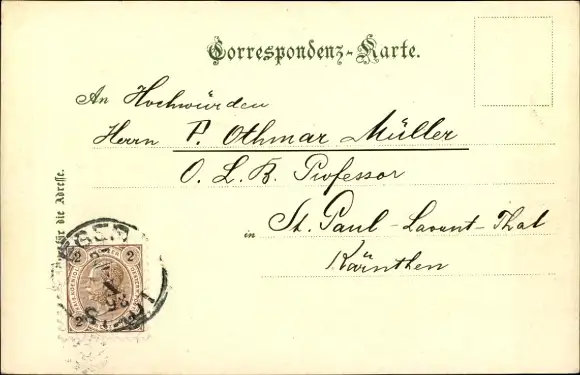 Correspondenz-Karte.
An Hochwürden
Herrn P. Othmar Müller
O. S. B. Professor
in St. Paul - Lavant-Thal
Kärnthen
für die Adresse.
2 2
2